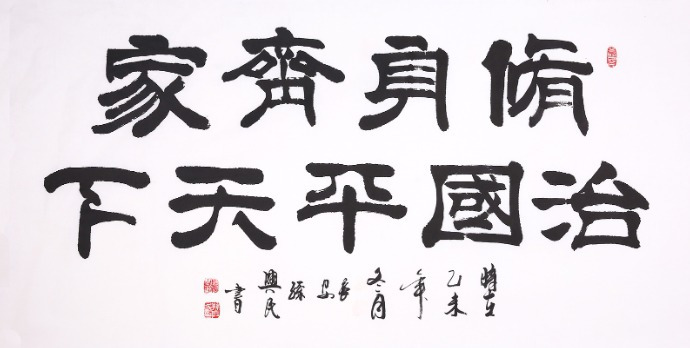 脩身齊家
治國平天下
時在乙未年冬月長安孫興民書